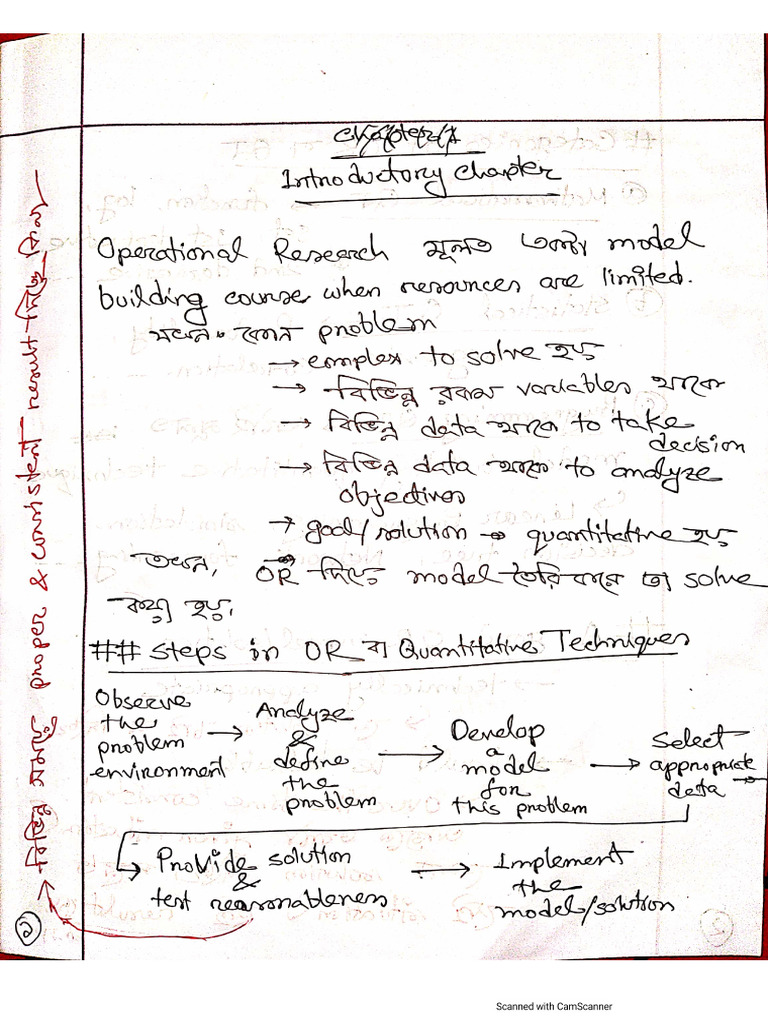 Introductory Chapter
Operational Research মূলত একটা model
building course when resources are limited.
যখন কোন problem
→ complex to solve হয়
→ বিভিন্ন রকম variables থাকে
→ বিভিন্ন data থাকে to take
decision
→ বিভিন্ন data থাকে to analyze
objectives
→ goal/solution → quantitative হয়
তখন, OR দিয়ে model তৈরি করে তা solve
করা হয়।
## Steps in OR বা Quantitative Techniques
Observe
the
problem
environment
→ Analyze
&
define
the
problem
→ Develop
a
model
for
this problem
→ Select
appropriate
data →
→ Provide solution
&
test reasonableness
→ Implement
the
model/solution
→ বিভিন্ন সময়ে proper & consistent result দিচ্ছে কিনা
Scanned with CamScanner